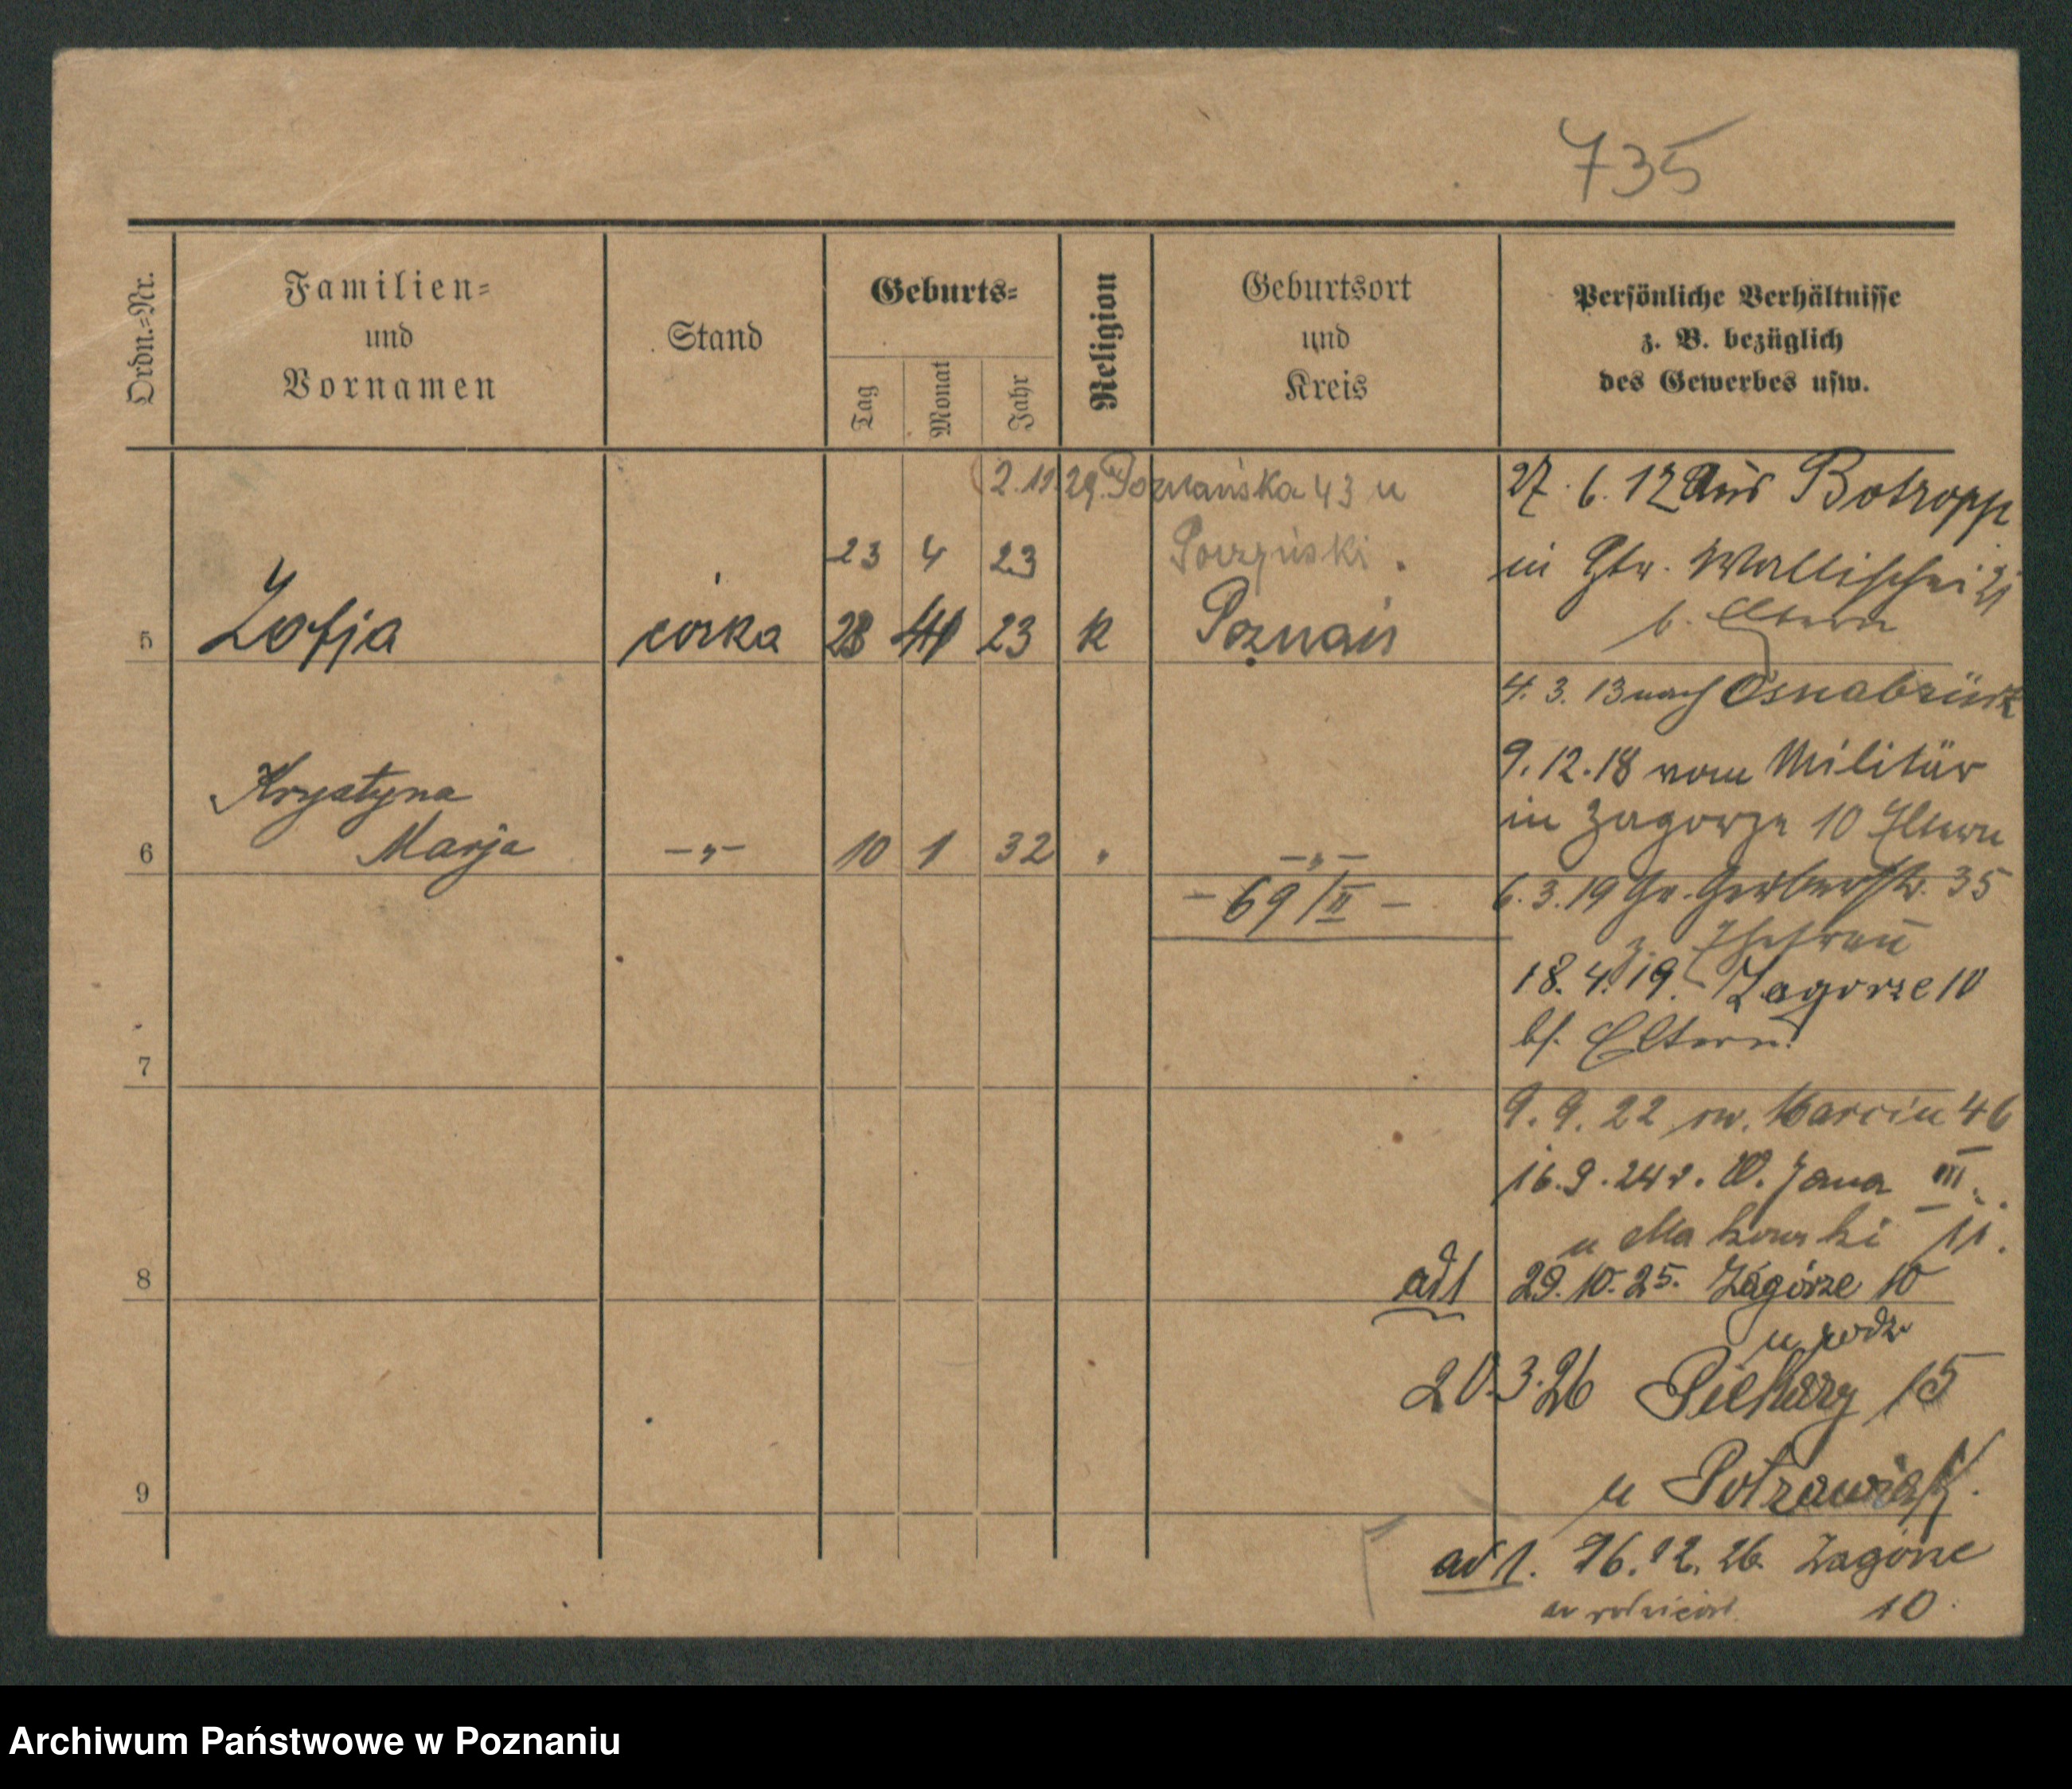 735
Ordn.=Nr.
Familien=
und
Vornamen
Stand
Geburts=
Tag
Monat
Jahr
Religion
Geburtsort
und
Kreis
Persönliche Verhältnisse
z. B. bezüglich
des Gewerbes usw.
2.11.29. Poznańska 43 u
23 4 23
5 Zofja córka 23 4 23 k Poznań
Krystyna
6 Marja —„— 10 1 32 " —„—
— 69/II —
7
8
9
27. 6. 12 aus Botropp
in Wallischei
b. Eltern
4. 3. 13 nach Osnabrück
9. 12. 18 vom Militär
in Zagorze 10 Eltern
6. 3. 19 Gr. Gerberstr. 35
z. Ehefrau
18. 4. 19. Zagorze 10
bf. Eltern
9. 9. 22 św. Marcin 46
16. 9. 24 r. Jana III
u Makowski 11.
ad 1 29. 10. 25. Zagórze 10
u rodz
20. 3. 26 Piekary 15
u
ad 1. 16. 12. 26. Zagórze
10
Archiwum Państwowe w Poznaniu